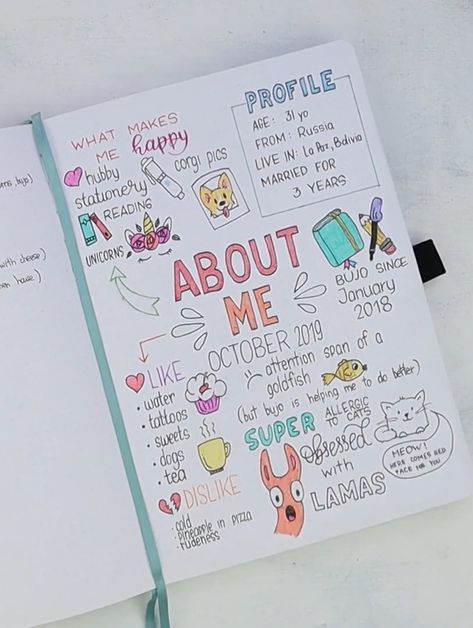 WHAT MAKES
ME happy
hubby
stationery
READING
corgi pics
UNICORNS
PROFILE
AGE: 31 yo
FROM: Russia
LIVE IN: La Paz, Bolivia
MARRIED FOR
3 YEARS
ABOUT
ME
OCTOBER 2019
BUJO SINCE
January
2018
LIKE
• water
• tattoos
• sweets
• dogs
• tea
attention span of a
goldfish
(but bujo is helping me to do better)
SUPER
Obsessed
with
LAMAS
ALLERGIC
TO CATS
MEOW!
HERE COMES RED
FACE FOR YOU
DISLIKE
• cold
• pineapple in pizza
• rudeness
, bujo)
with cheese)
have)